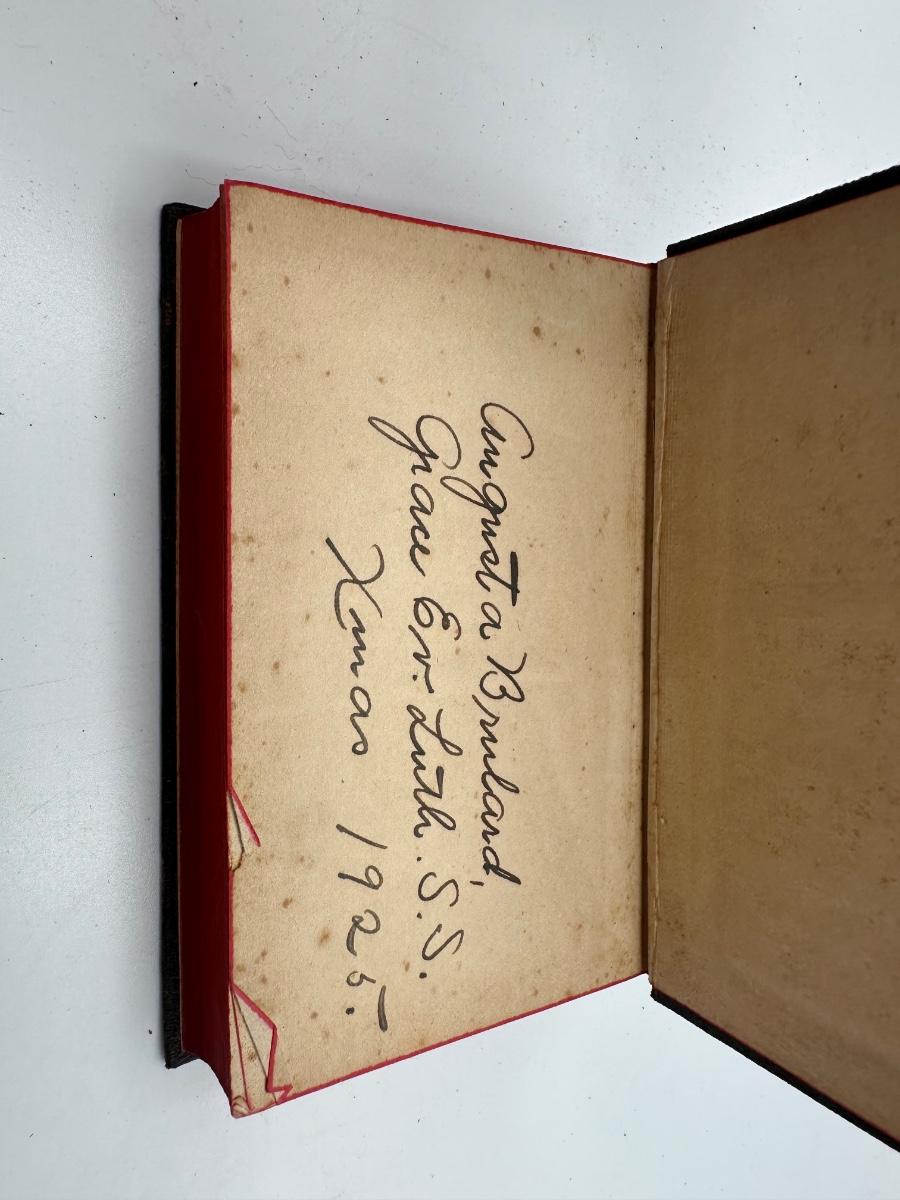 Augusta Bruland,
Grace Ev. Luth. S.S.
Xmas 1925.